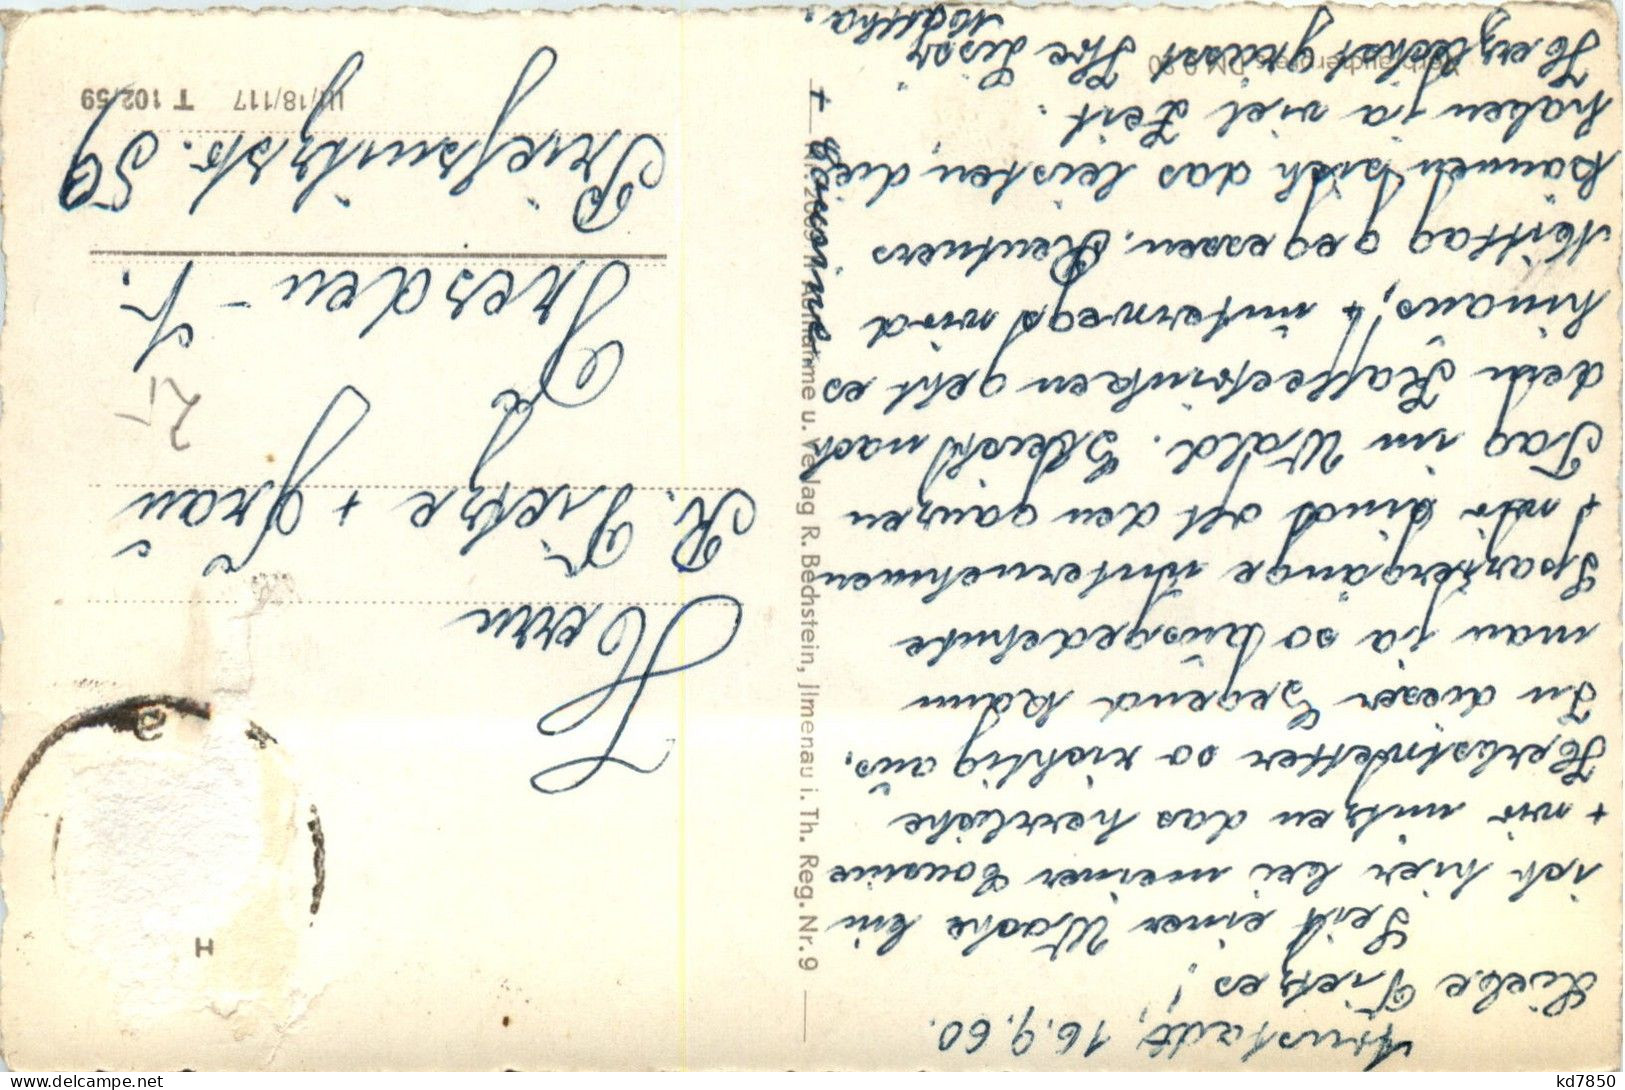 Arnstadt, 16.9.60.
Liebe Tietzes!
Seit einer Woche bin
ich hier bei meiner Cousine
+ wir nutzen das herrliche
Herbstwetter so richtig aus.
In dieser Gegend kann
man ja so ausgedehnte
Spaziergänge unternehmen
+ wir sind oft den ganzen
Tag im Wald. Gleich nach
dem Kaffeetrinken geht es
hinaus, + unterwegs wird
Mittag gegessen. Rentners
können sich das leisten, die
haben ja viel Zeit.
Herzlichst grüsst Ihre
Martha.
+ Cousine.
Verbraucherpreis DM 0,20
Aufnahme u. Verlag R. Bechstein, Jlmenau i. Th. Reg. Nr. 9
Herrn
R. Tietze + Frau
Dresden -
Prießnitzstr. 59
2,-
III/18/117 T 102/59
H
kd7850